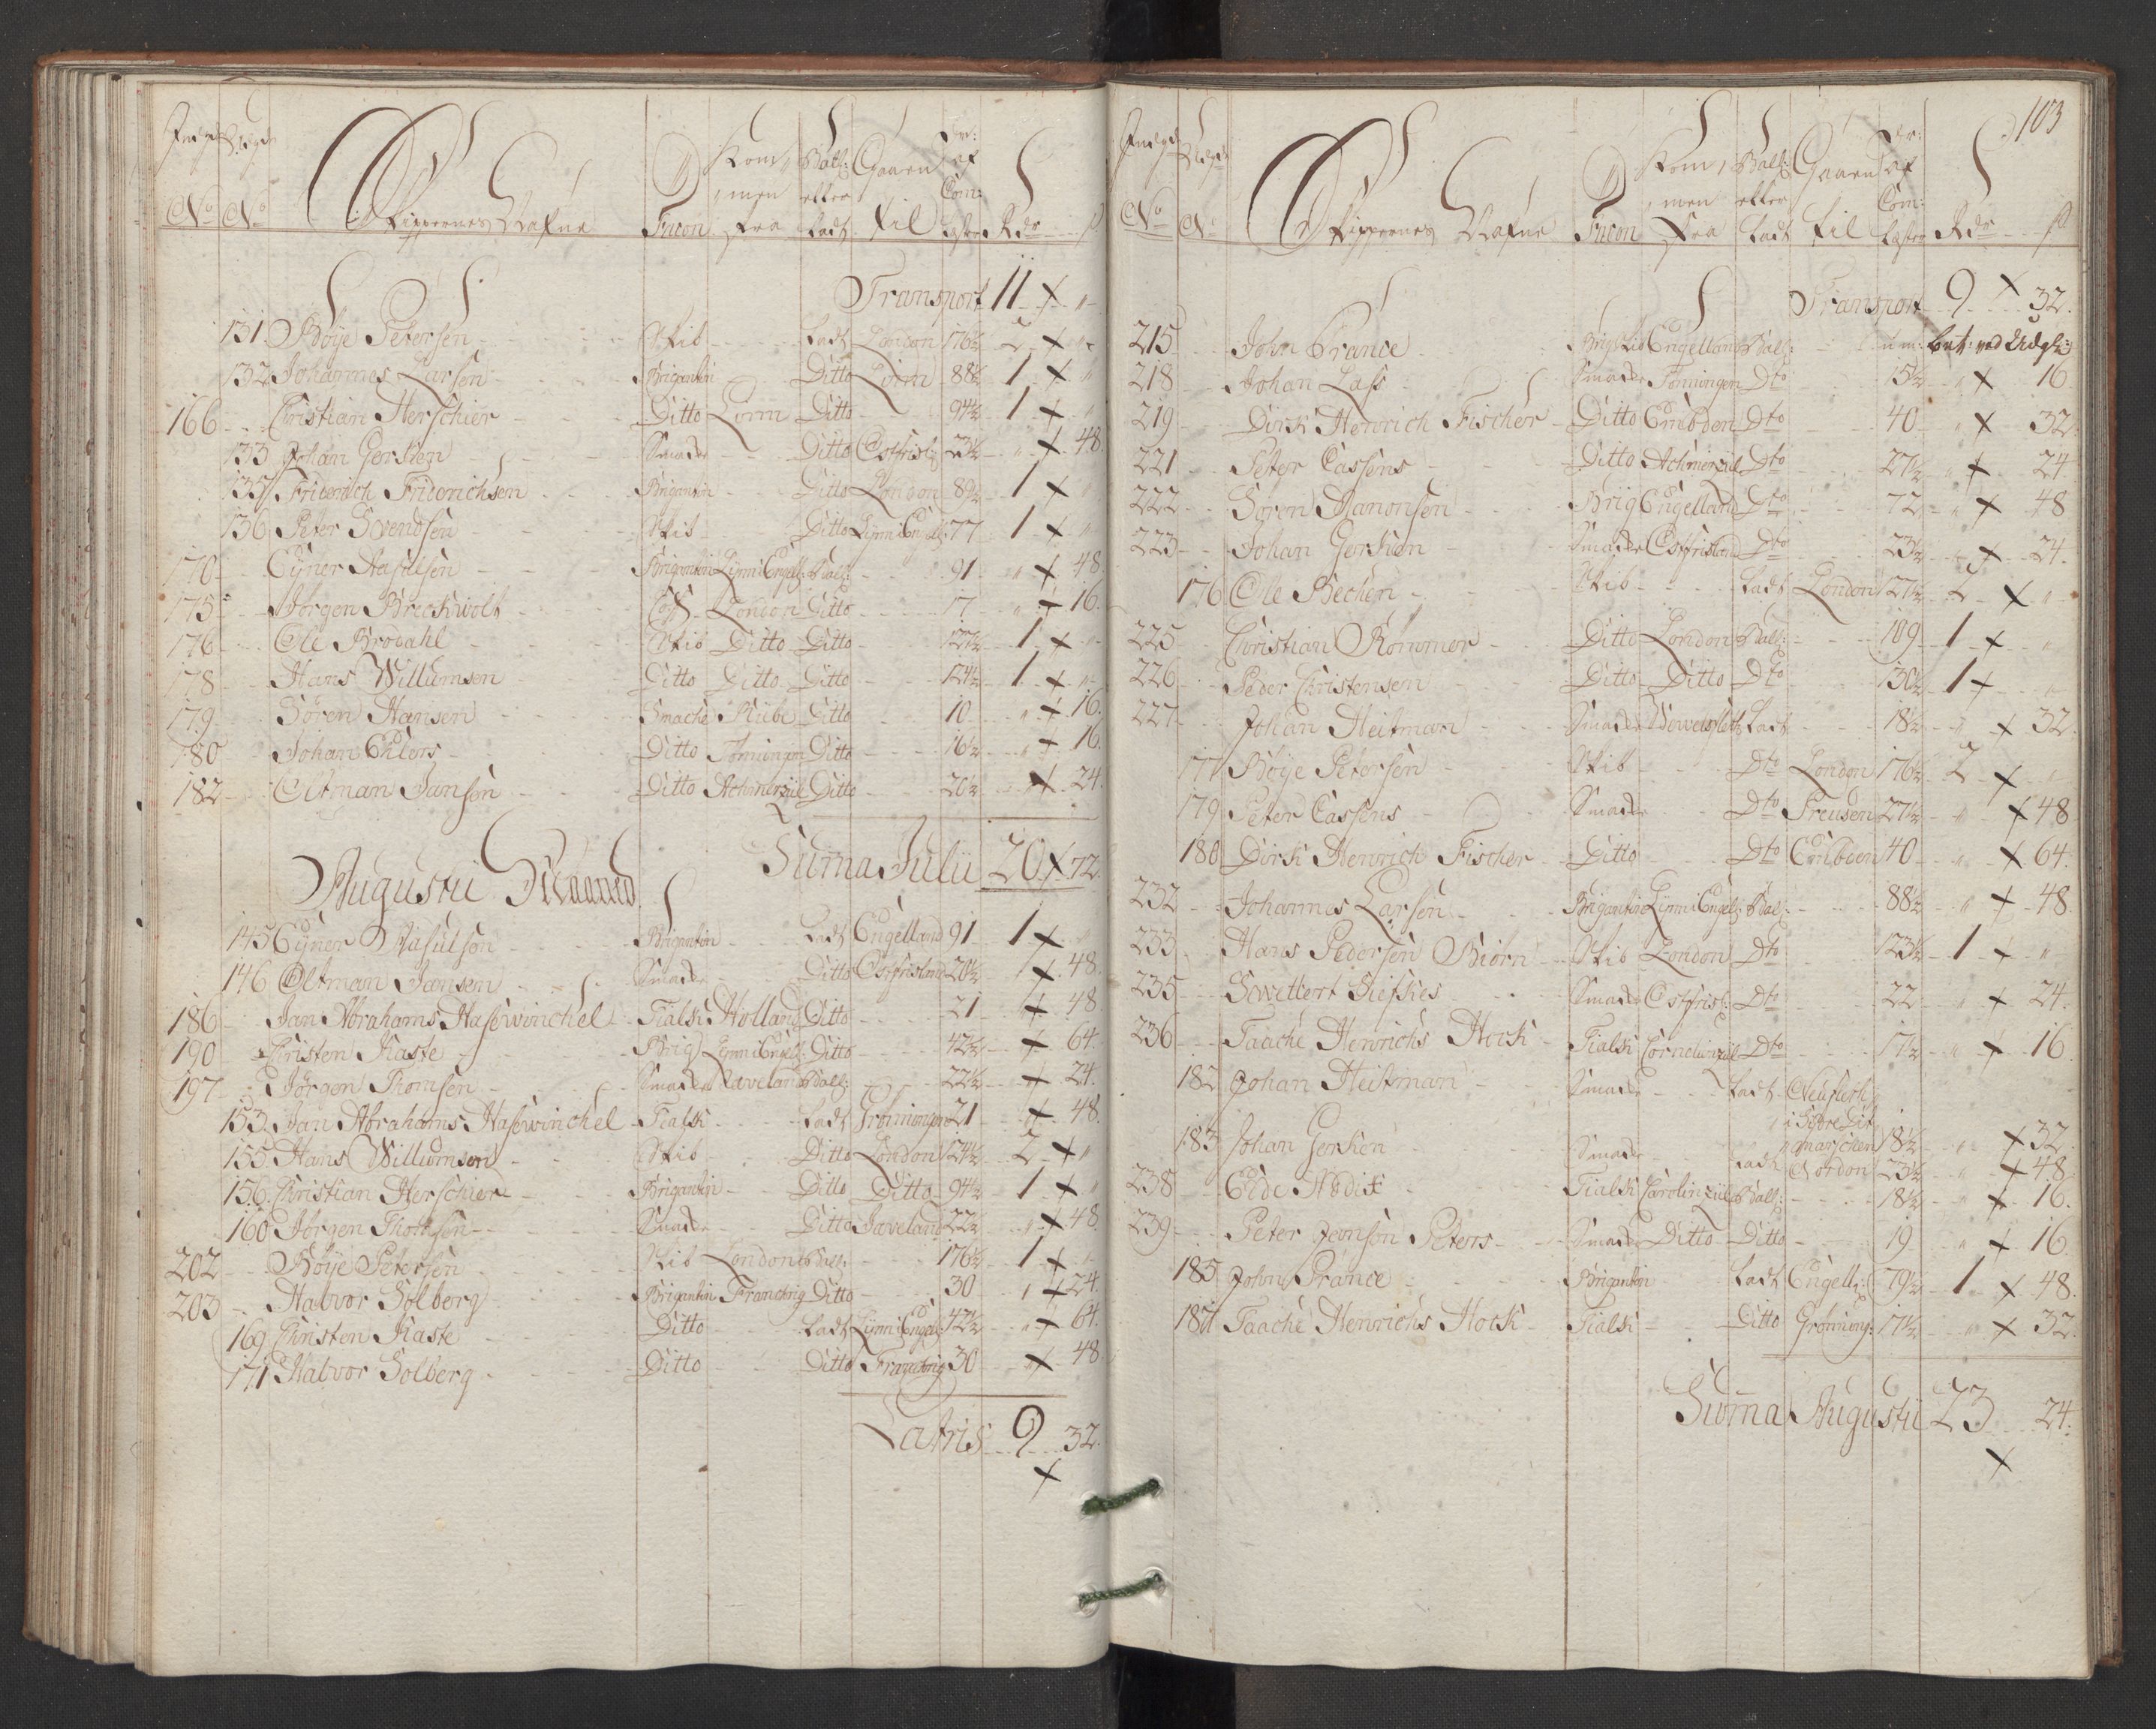 Indgd Udgd Kom, Ball: Gaaen Dr: af
men etter Com:
No No Skippernes Nafne Tucon fra Ladt til Læster Rdr ß
Transport 11 " "
131 Böye Petersen Skib Ladt London 176½ 2 "
132 Johannes Larsen Brigantin Ditto Lorn 88½ 1 "
166 Christian Herschier Ditto Lonn Ditto 94½ 1 "
133 Johan Gerken Smacke Ditto Ostfrisl: 23½ " 48
135 Friderich Friderichsen Brigantin Ditto London 89½ 1 "
136 Peter Svendsen Skib Ditto Lynn i Engell: 77 1 "
170 Eÿner Aasulsen Brigantin Lynn i Engell: Ball: 91 " 48
175 Jörgen Breckwolt Coff London Ditto 17 " 16
176 Ole Brodahl Skib Ditto Ditto 127½ 1 "
178 Hans Willumsen Ditto Ditto Ditto 124½ 1 "
179 Sören Hansen Smache Ribe Ditto 10 " 16
180 Johan Ehlers Ditto Tönningen Ditto 16½ " 16
182 Oltman Jansen Ditto Achmersiel Ditto 26½ 24
Suma Julii 20 72
Augustii Maaned
145 Eÿner Aasulsen Brigantin Ladt Engelland 91 1 "
146 Oltman Jansen Smacke Ditto Ostfrisland 26½ 48
186 Jan Abrahams Hasewinchel Tialk Holland Ditto 21 48
190 Christen Kaste Brig Lynn i Engell: Ditto 42½ 64
197 Jörgen Thomsen Smacke Javeland Ball: 22½ 24
153 Jan Abrahams Hasewinchel Tialk Ladt Grönningen 21 48
155 Hans Willumsen Skib Ditto London 124½ 2 "
156 Christian Herschier Brigantin Ditto Ditto 94½ 1 "
160 Jörgen Thomsen Smacke Ditto Javeland 22½ " 48
202 Böye Petersen Skib London Ball: 176½ 1 "
203 Halvor Solberg Brigantin Franchrig Ditto 30 " 24
169 Christen Kaste Ditto Ladt Lynn i Engell: 42½ " 64
171 Halvor Solberg Ditto Ditto Franchrig 30 " 48
Latris 9 32
103
Indgd Udgd Kom, Ball: Gaaen Dr: af
men etter Com:
No No Skippernes Nafne Tucon fra Ladt til Læster Rdr ß
Transport 9 32
215 John Prance Brig Skib Engelland Ball: bet: ved Udgl:
218 Johan Lass Smacke Tönningen Dto 15½ " 16
219 Dirk Henrich Fischer Ditto Embden Dto 40 " 32
221 Peter Cassens Ditto Achmersiel Dto 27½ " 24
222 Sören Aanonsen Brig Engelland Dto 72 " 48
223 Johan Gerken Smacke Ostfrisland Dto 23½ " 24
176 Ole Bechen Skib Ladt London 121½ 2 "
225 Christian Römmer Ditto London Ball: 109 1 "
226 Peder Christensen Ditto Ditto Dto 130½ 1 "
227 Johan Heitman Smacke Wewelsfleth Ladt 18½ " 32
177 Böye Petersen Skib Dto London 176½ 2 "
179 Peter Cassens Smacke Dto Preusen 27½ " 48
180 Dirk Henrich Fischer Ditto Dto Embden 40 " 64
232 Johannes Larsen Brigantin Lynn i Engel: Bal: 88½ " 48
233 Hans Pedersen Biörn Skib London Dto 123½ 1 "
235 Swittert Siefkes Smacke Ostfrisl: Dto 22 " 24
236 Taache Henrichs Hock Tialk Cornelinziel Dto 17½ " 16
182 Johan Heitman Smacke Ladt Neukirk
marschen 18½ " 32
183 Johan Gerken Smacke Ladt Norden 23½ " 48
238 Eide Abdix Tialk Carolinziel Ball: 18½ " 16
239 Peter Jeonson Peters Smacke Ditto Ditto 19 " 16
185 John Prance Brigantin Ladt Engell: 79½ 1 48
187 Taache Henrichs Hock Tialk Ditto Grönning: 17½ " 32
Suma Augustii 23 24